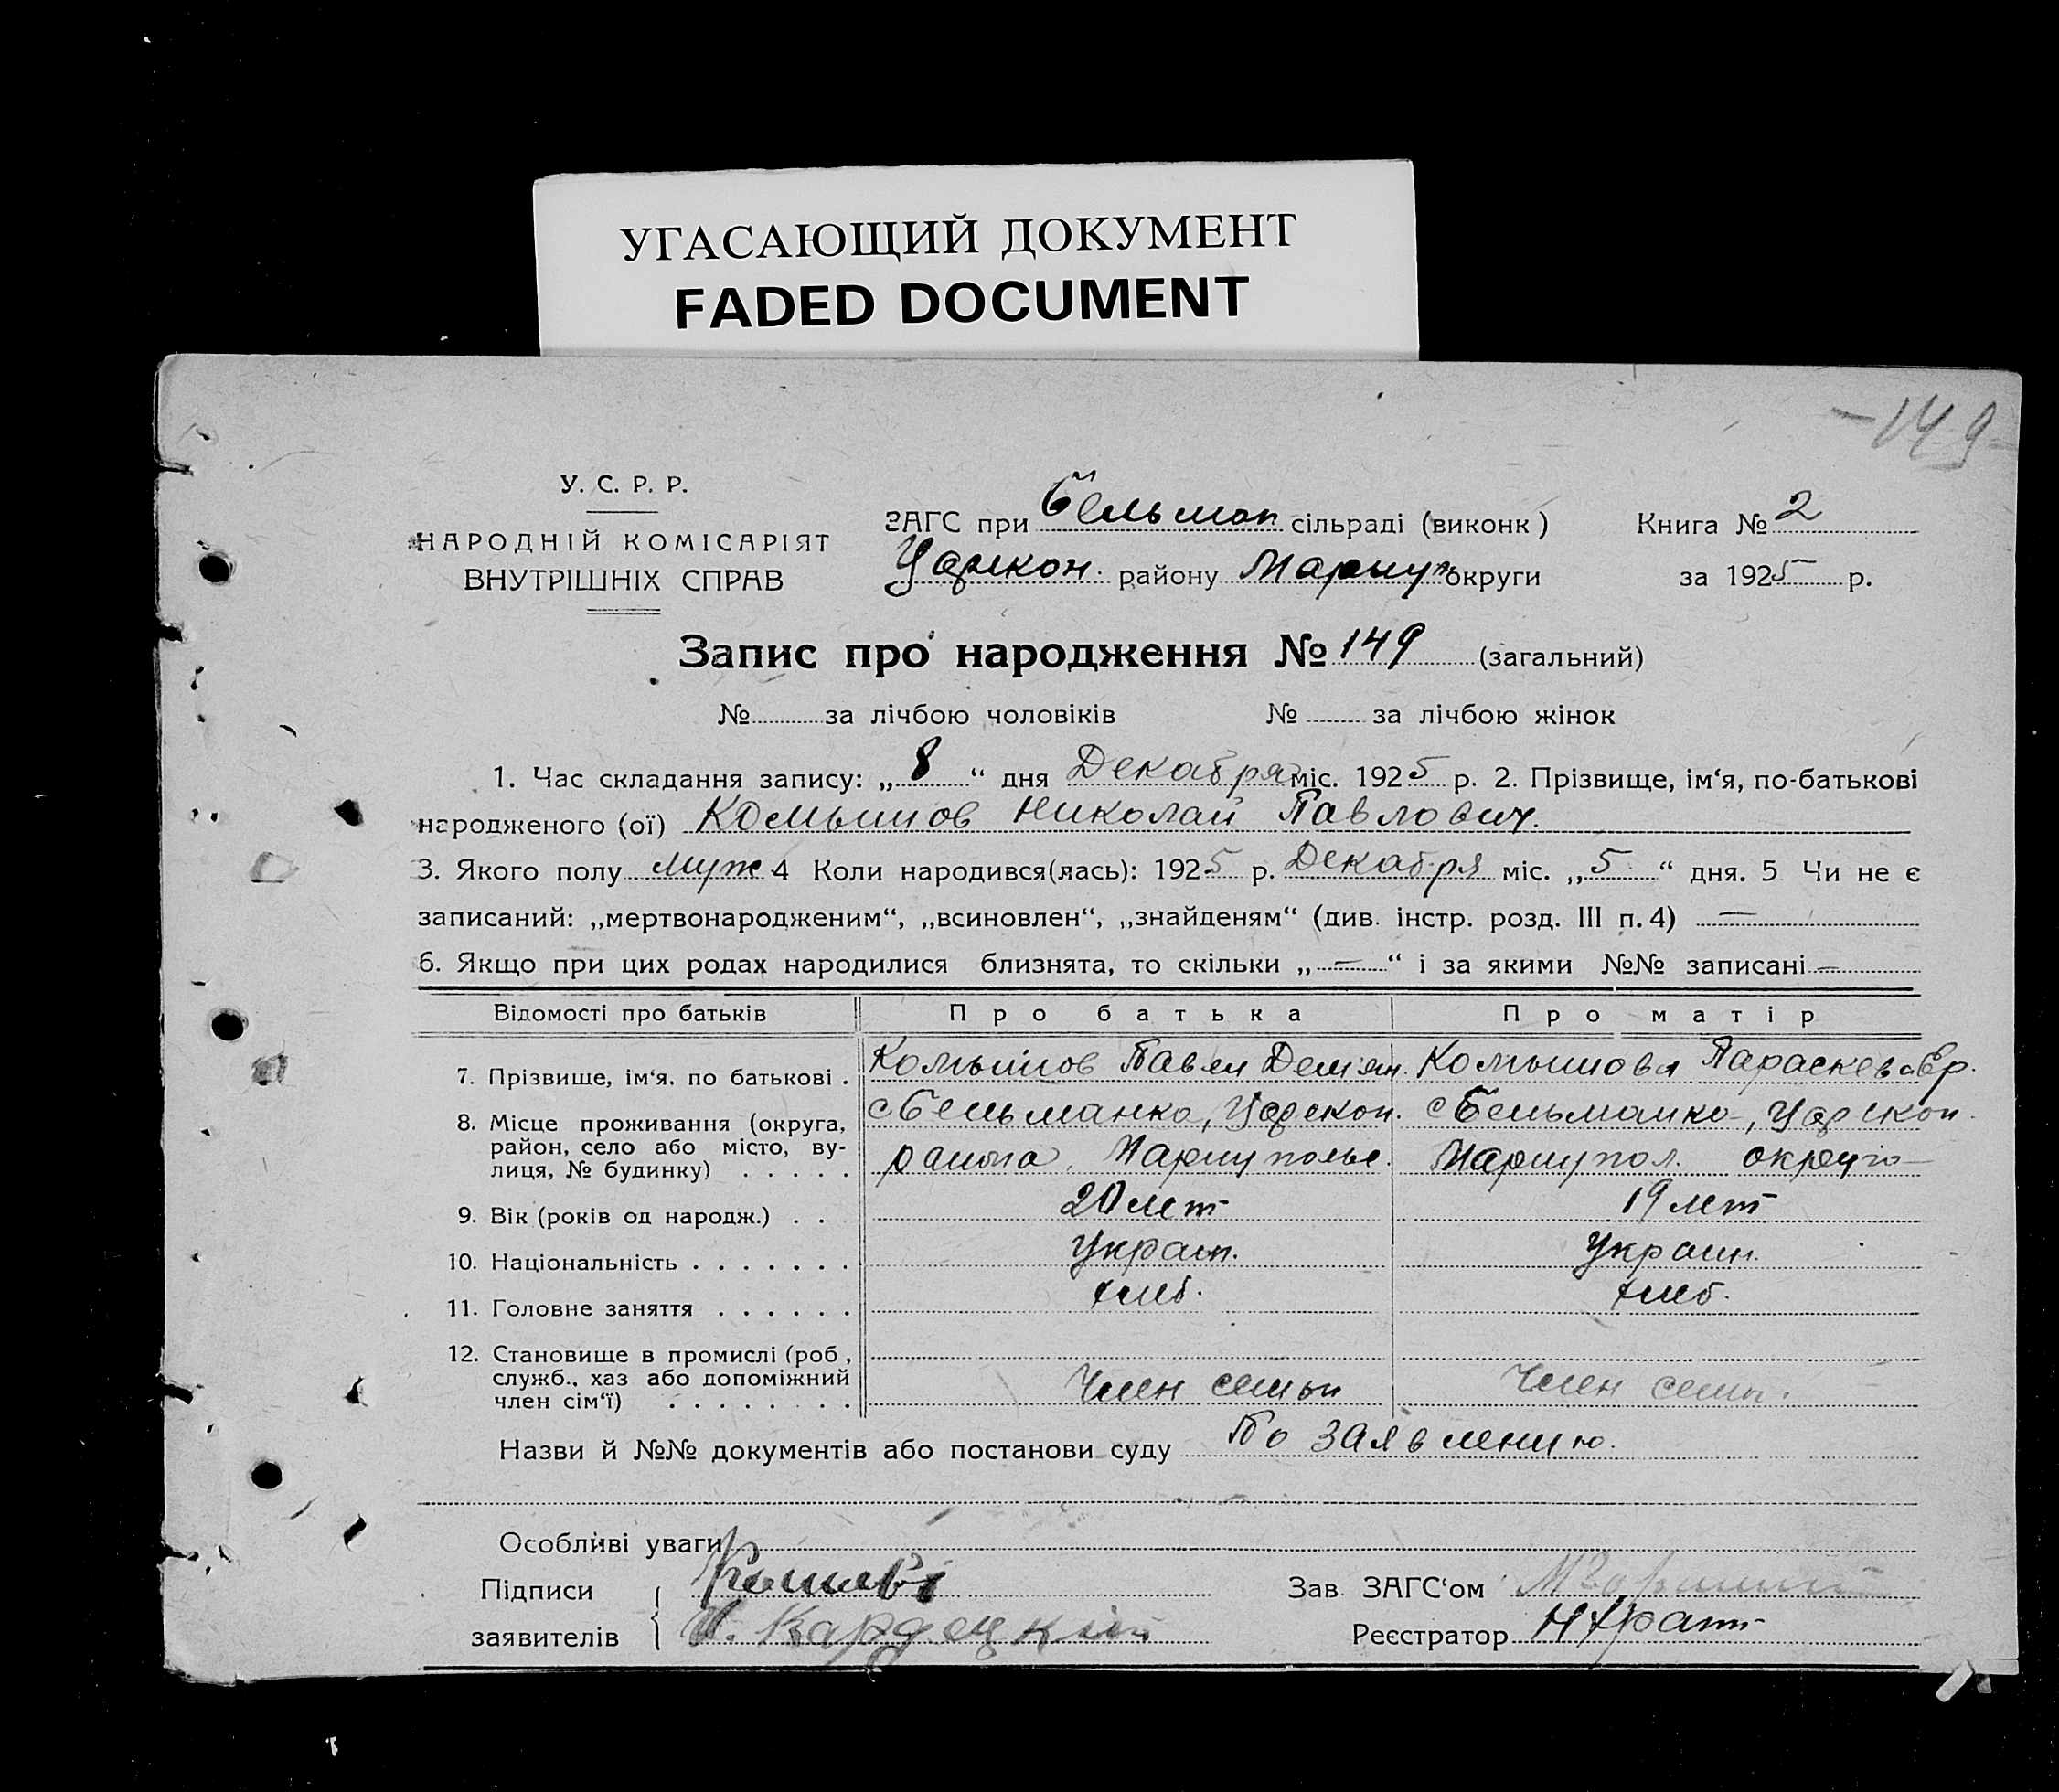 УГАСАЮЩИЙ ДОКУМЕНТ
FADED DOCUMENT
-149-
У. С. Р. Р.
НАРОДНІЙ КОМІСАРІЯТ
ВНУТРІШНІХ СПРАВ
ЗАГС при Бельман сільраді (виконк) Книга № 2
Царекон. району Мариуп округи за 1925 р.
Запис про народження № 149 (загальний)
№ за лічбою чоловіків № за лічбою жінок
1. Час складання запису: „8“ дня Декабря міс. 1925 р. 2. Прізвище, ім‘я, по-батькові
народженого (ої) Комышов Николай Павлович.
3. Якого полу муж 4 Коли народився(лась): 1925 р. Декабря міс. „5“ дня. 5 Чи не є
записаний: „мертвонародженим“, „всиновлен“, „знайденям“ (див. інстр. розд. III п. 4) —
6. Якщо при цих родах народилися близнята, то скільки „—“ і за якими №№ записані —
Відомості про батьків Про батька Про матір
7. Прізвище, ім‘я. по батькові . Комышов Павел Демян. Комышова Параскева Ер.
8. Місце проживання (округа, район, село або місто, вулиця, № будинку) с Бельманка, Царекон. с Бельманка, Царекон.
района, Мариупольс. Мариупол. округа
9. Вік (років од народж.) . . 20 лет 19 лет
10. Національність . . . . . . . Украин. Украин.
11. Головне заняття . . . . . . хлеб. хлеб.
12. Становище в промислі (роб., служб., хаз або допоміжний член сім‘ї) . . . . . . . . Член семьи Член семьи.
Назви й №№ документів або постанови суду По заявлению.
Особливі уваги
Підписи Зав. ЗАГС‘ом
заявителів Кардецкий Реєстратор